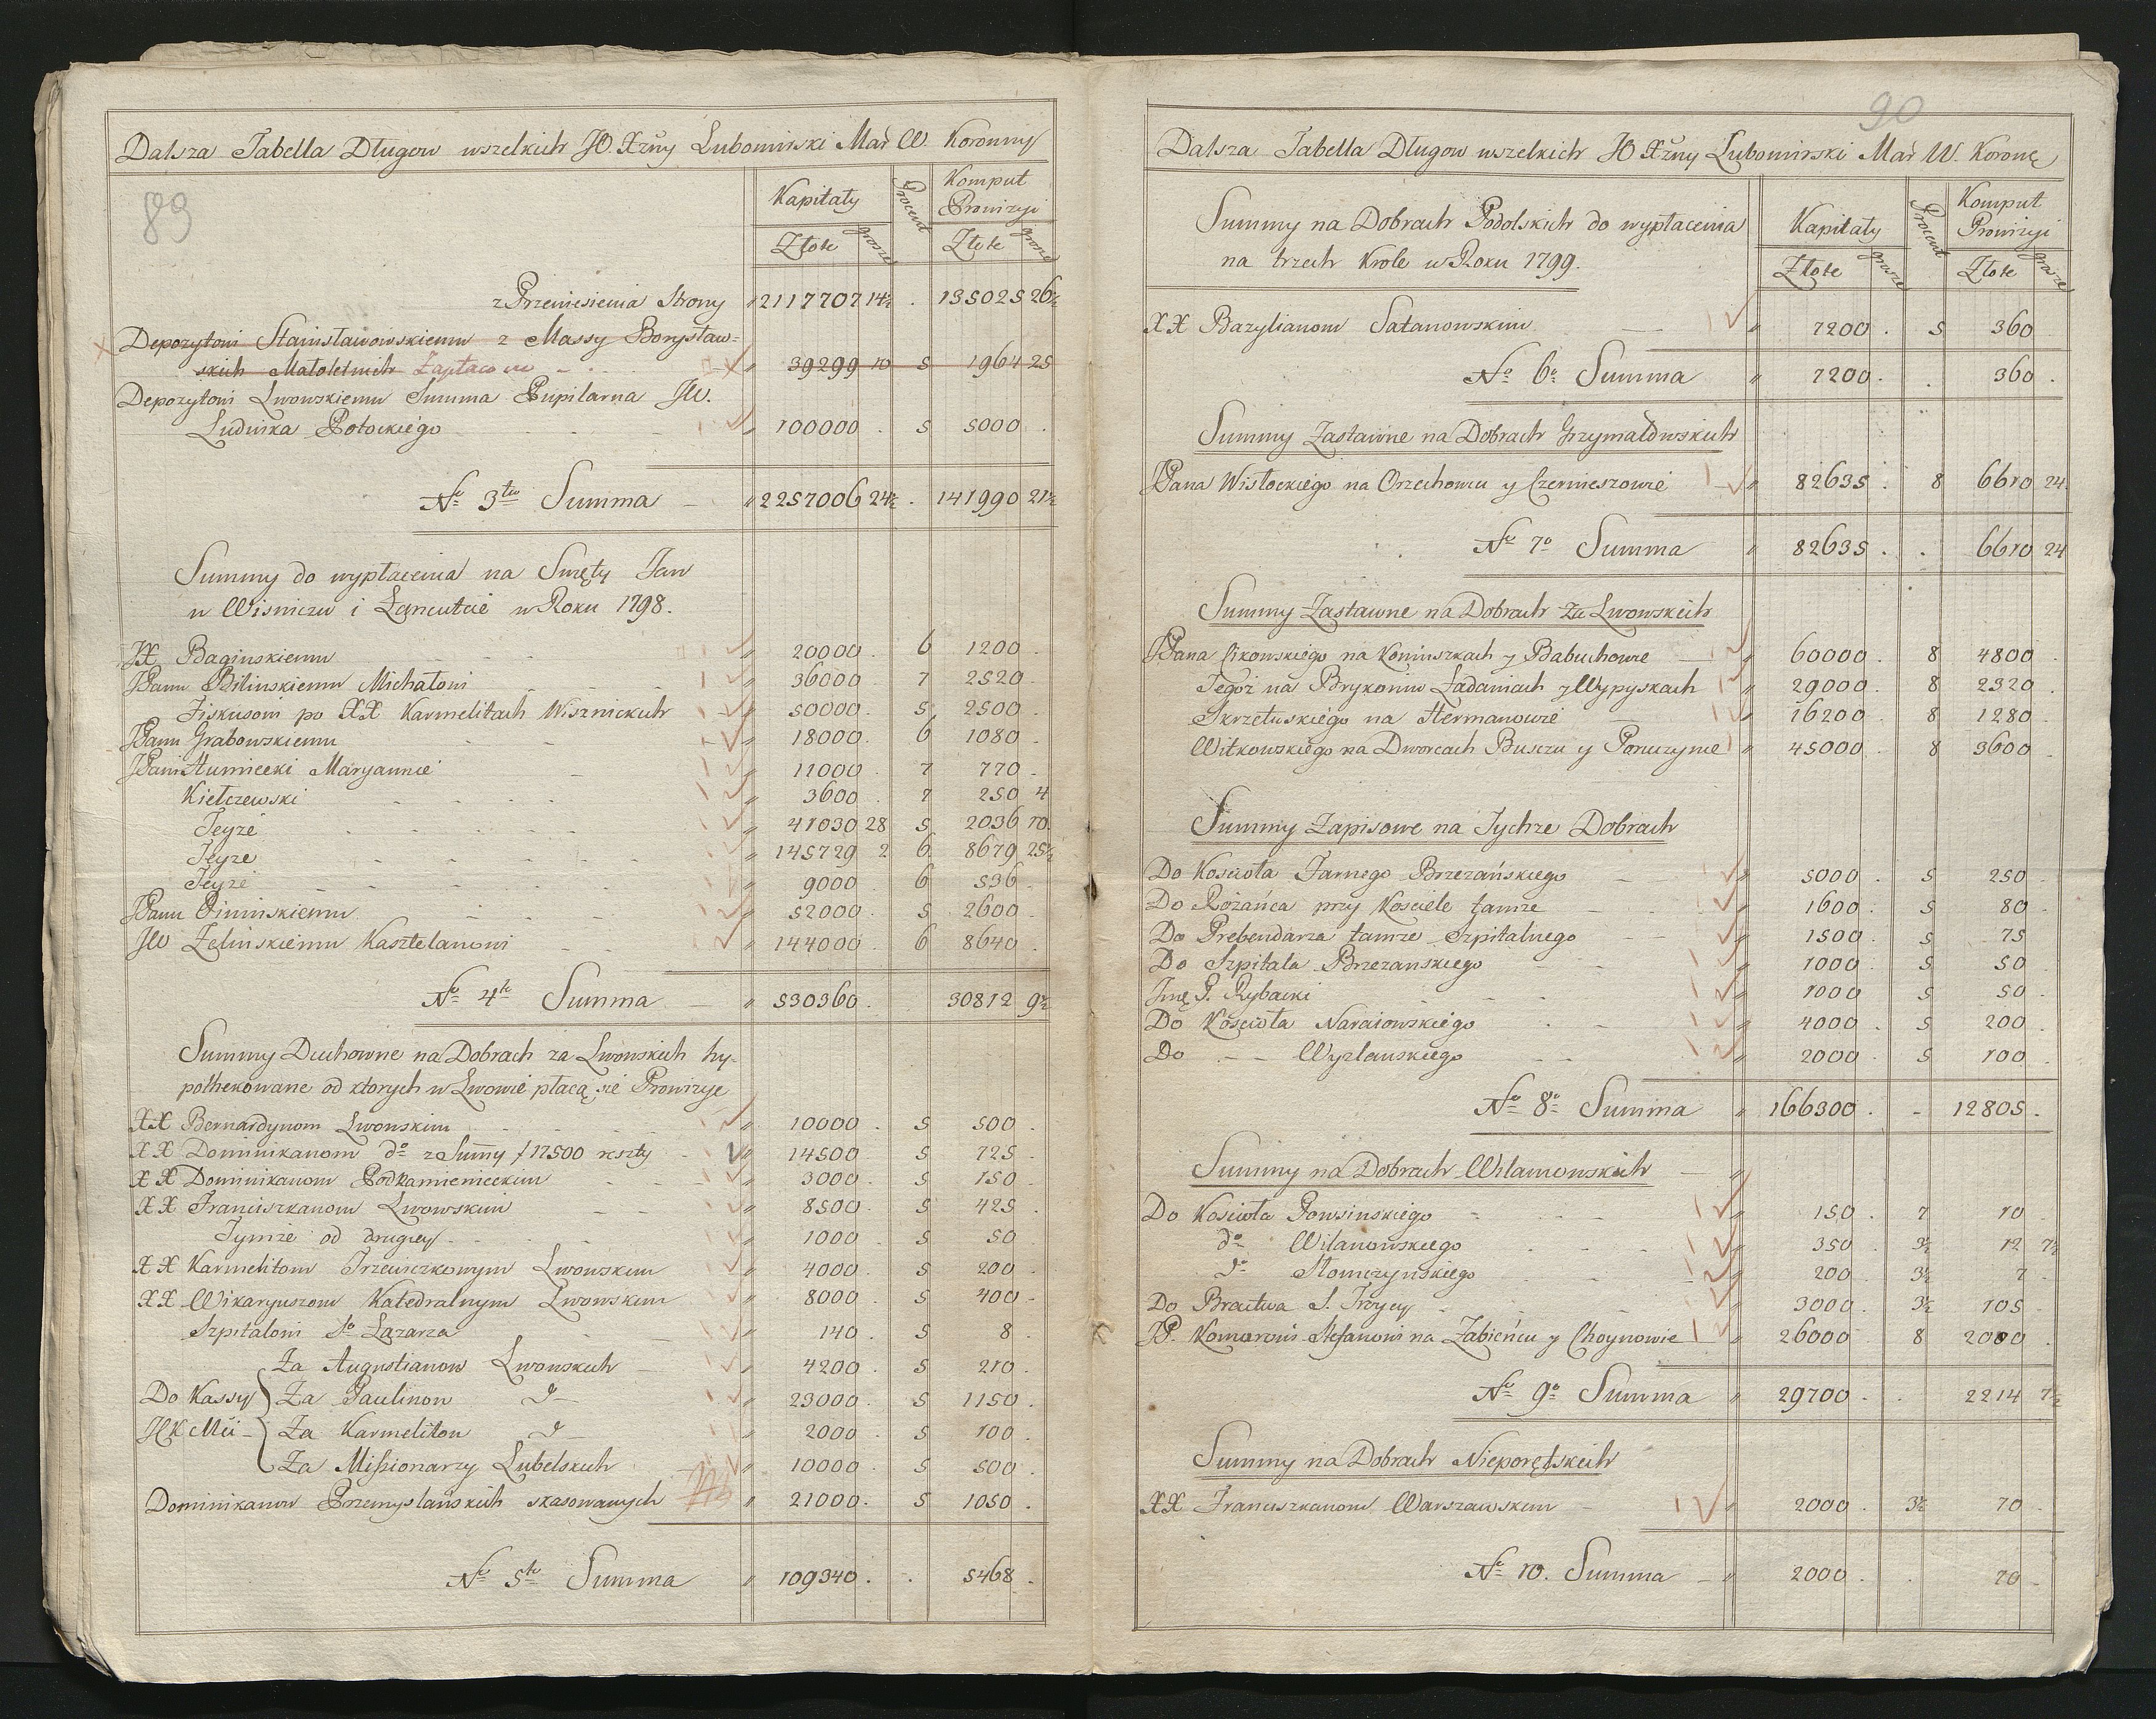 Dalsza Tabella Długow wszelkich JO. Xżny Lubomirski Mar W. Koronny
89
Kapitały Procent Komput Prowizyi
Złote grosze Złote grosze
z Przeniesienia Strony " 2117707 14½ . 135025 26½
Depozytowi Stanisławowskiemu z Massy Borysław=
skich Małoletnich Zapłacone " 39299 10 5 1964 25
Depozytowi Lwowskiemu Summa Pupilarna JW.
Ludwika Potockiego " 100000 . 5 5000 .
No 3tio Summa " 2257006 24½ . 141990 21½
Summy do wypłacenia na Swięty Jan
w Wisniczu i Łancutcie w Roku 1798.
JX Baginskiemu " 20000 . 6 1200 .
JPanu Bilinskiemu Michałowi " 36000 . 7 2520 .
Fiskusowi po XX Karmelitach Wisznickich " 50000 . 5 2500 .
JPanu Grabowskiemu " 18000 . 6 1080 .
JPani Humiecki Maryannie " 11000 . 7 770 .
Kiełczewski " 3600 . 7 250 4
Teyże " 41030 28 5 2036 10
Teyże " 145729 2 6 8679 25½
Teyże " 9000 . 6 536 .
JPanu Pininskiemu " 52000 . 5 2600 .
JW Zelinskiemu Kasztelanowi " 144000 . 6 8640 .
No 4to Summa " 530360 . 30812 9½
Summy Duchowne na Dobrach za Lwowskich hy-
pothekowane od ktorych w Lwowie płacą się Prowizye
XX Bernardynom Lwowskim " 10000 . 5 500 .
XX Dominikanom do z Summy f 17500 reszty " 14500 5 725 .
XX Dominikanom Podkamienieckim " 3000 . 5 150 .
XX Franciszkanom Lwowskim " 8500 . 5 425 .
Tymże od drugiey " 1000 . 5 50 .
XX Karmelitom Trzewiczkowym Lwowskim " 4000 . 5 200 .
XX Wikaryuszom Katedralnym Lwowskim " 8000 . 5 400 .
Szpitalowi So Łazarza " 140 . 5 8 .
Za Augustianow Lwowskich " 4200 . 5 210 .
Do Kassy Za Paulinow do " 23000 . 5 1150 .
Za Karmelitow do " 2000 . 5 100 .
Za Missionarzy Lubelskich " 10000 . 5 500 .
Dominikanow Przemyslańskich skasowanych " 21000 . 5 1050 .
No 5to Summa " 109340 . . 5468 .
90
Dalsza Tabella Długow wszelkich JO Xżny Lubomirski Mar W. Koronę
Summy na Dobrach Podolskich do wypłacenia
na trzech Krole w Roku 1799.
Kapitały Procent Komput Prowizyi
Złote grosze Złote grosze
XX Bazylianom Satanowskim " 7200 . 5 360
No 6o Summa " 7200 . . 360 .
Summy Zastawne na Dobrach Grzymałowskich
JPana Wisłockiego na Orzechowcu y Czernieszowie " 82635 . 8 6610 24
No 7o Summa " 82635 . . 6610 24
Summy Zastawne na Dobrach Za Lwowskich
JPana Cikowskiego na Koniuszkach y Babuchowie " 60000 . 8 4800 .
Tegoż na Brykoniu Ładaniach y Wypyskach " 29000 . 8 2320 .
Skrzetuskiego na Hermanowie " 16200 . 8 1280 .
Witkowskiego na Dworcach Buszczu y Poruczynie " 45000 . 8 3600 .
Summy Zapisowe na Tychże Dobrach
Do Kościoła Farnego Brzezańskiego " 5000 . 5 250 .
Do Rożańca przy Kosciele tamże " 1600 . 5 80 .
Do Prebendarza tamże Szpitalnego " 1500 . 5 75 .
Do Szpitala Brzezanskiego " 1000 . 5 50 .
Jmę P. Rybacki " 1000 5 50 .
Do Kościoła Naraiowskiego " 4000 . 5 200 .
Do - - Wyzlanskiego " 2000 . 5 100 .
No 8o Summa " 166300 . - 12805 .
Summy na Dobrach Wilanowskich "
Do Kościoła Powsinskiego " 150 . 7 10 .
do Wilanowskiego " 350 . 3½ 12 7½
do Słomczynskiego " 200 . 3½ 7 .
Do Bractwa S. Troycy " 3000 . 3½ 105 .
JP. Komarowi Stefanowi na Żabieńcu y Choynowie " 26000 8 2080 .
No 9o Summa " 29700 . . 2214 7½
Summy na Dobrach Nieporętskich
XX Franciszkanom Warszawskim " 2000 . 3½ 70 .
No 10. Summa " 2000 . . 70 .